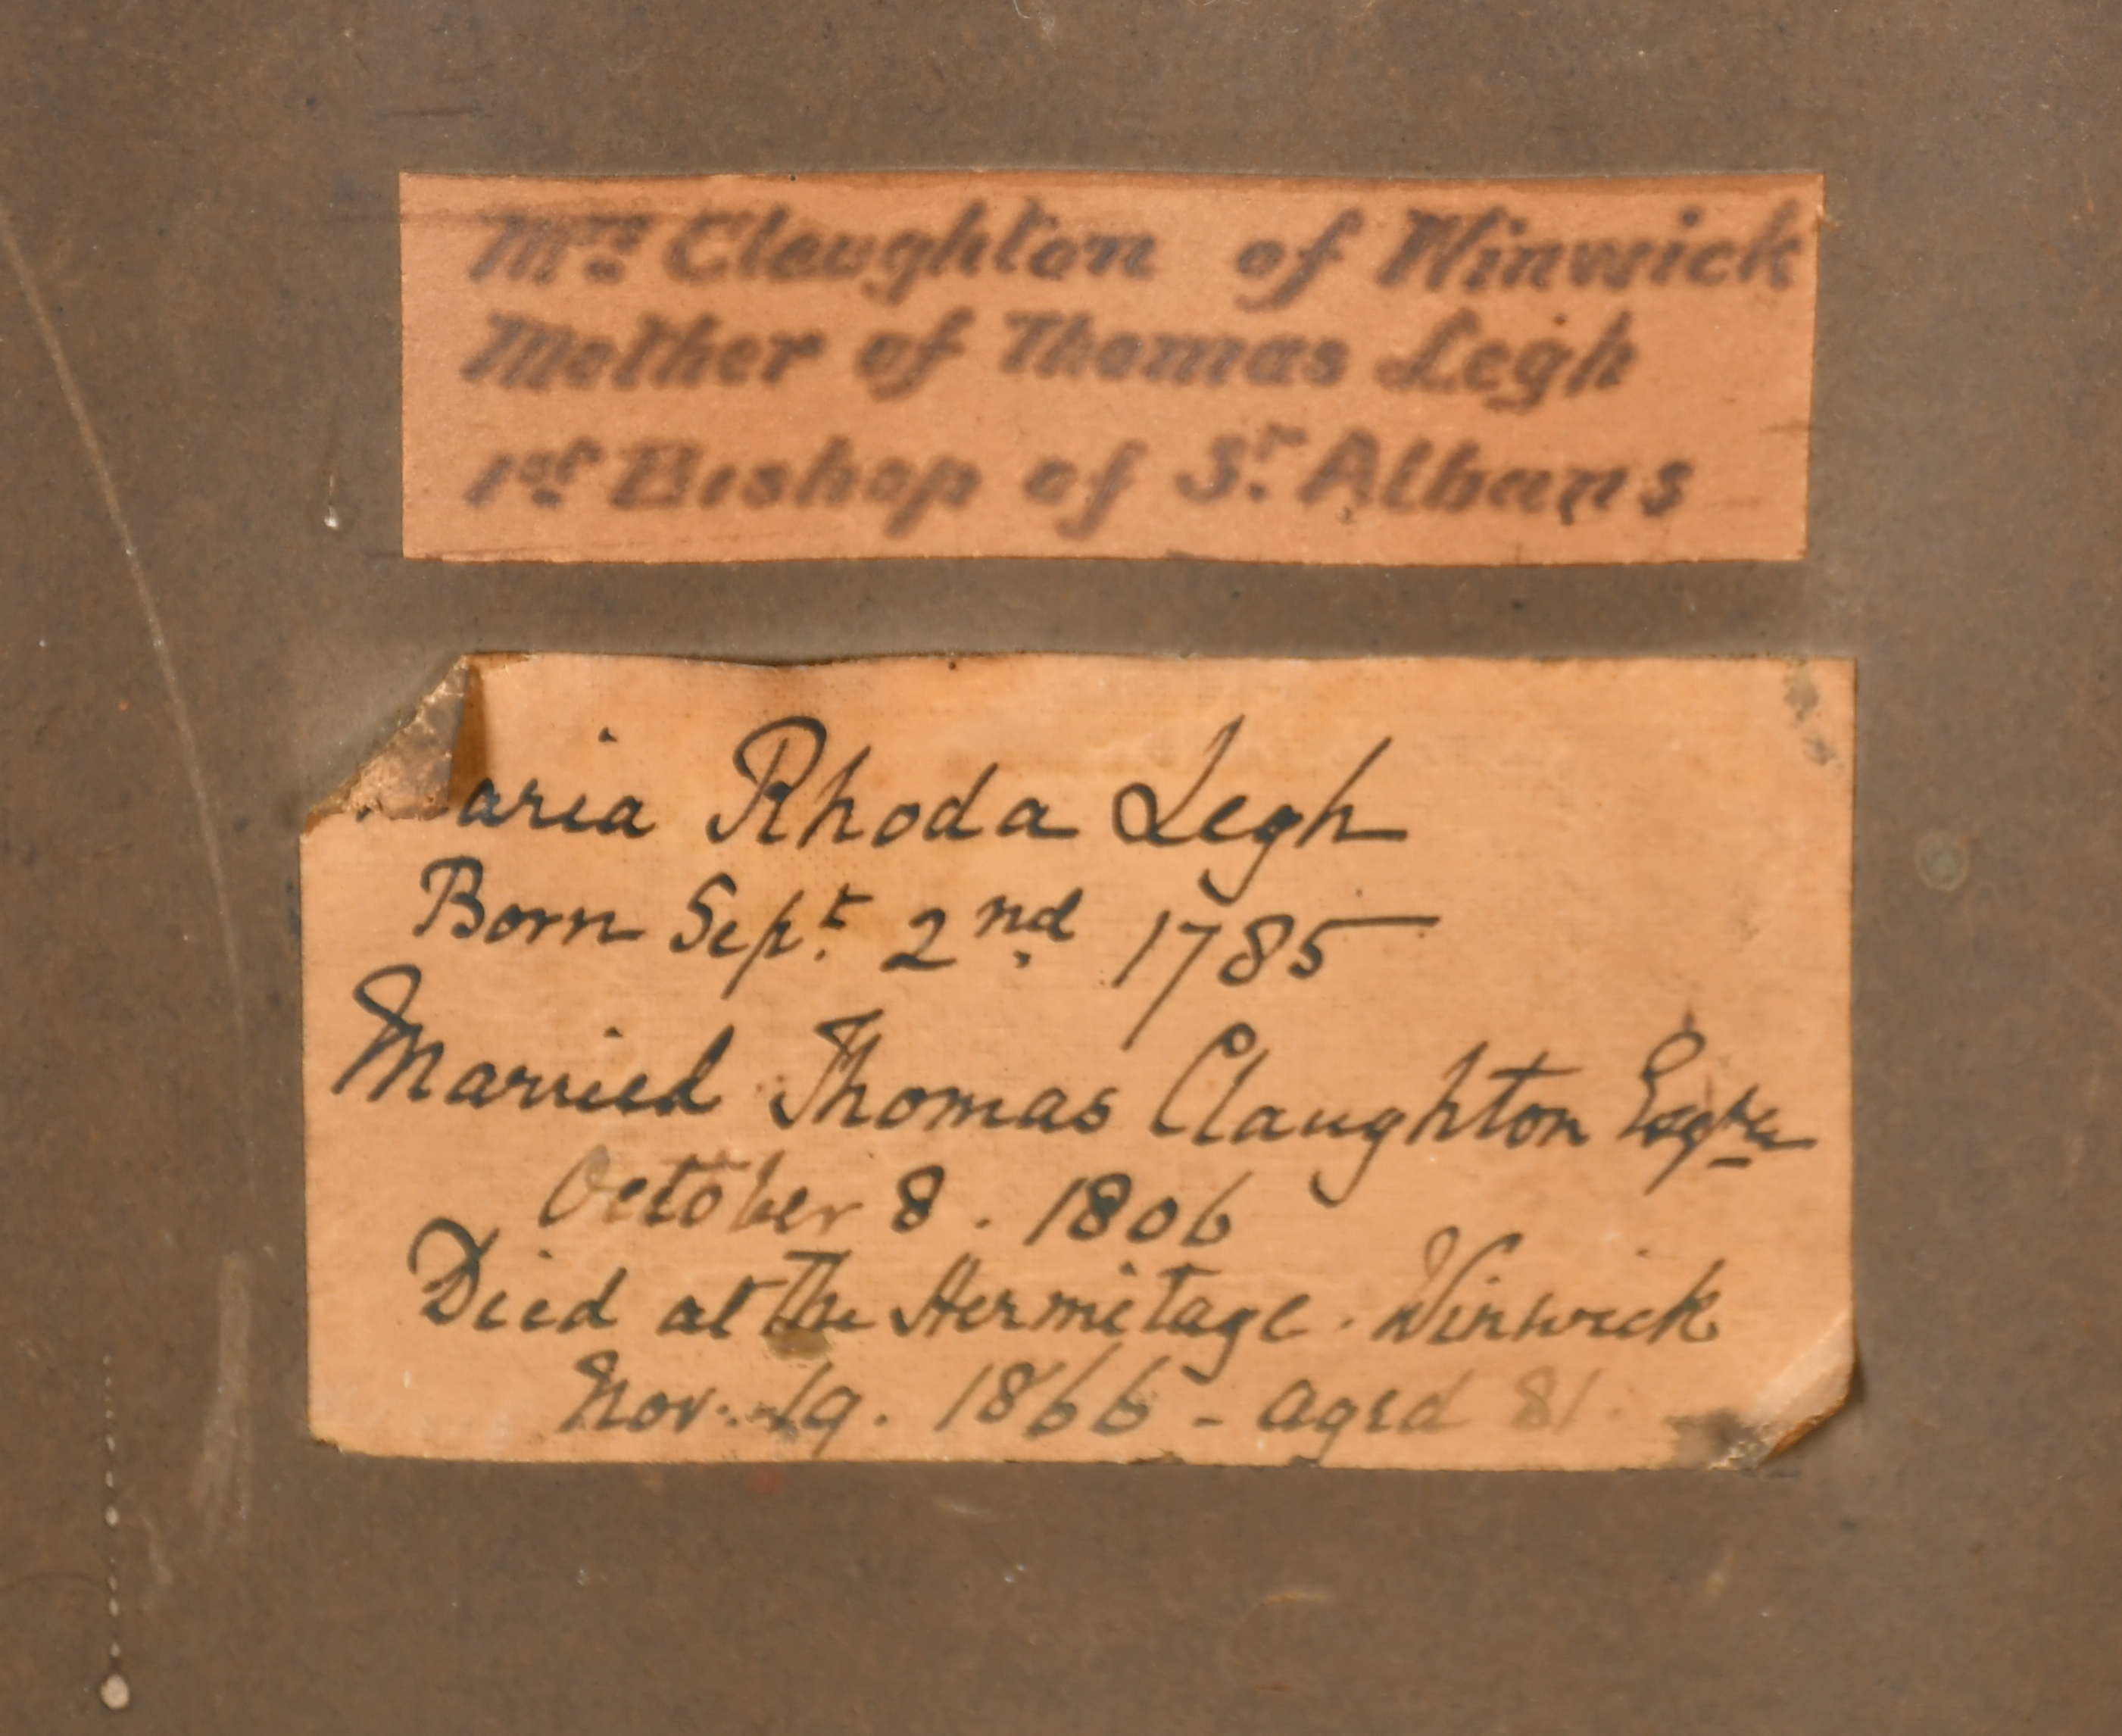 Mrs. Claughton of Winwick
Mother of Thomas Legh
1st. Bishop of St. Albans
aria Rhoda Legh
Born Sept. 2nd. 1785
Married Thomas Claughton Esqre
October 8. 1806
Died at The Hermitage. Winwick
Nov. 19. 1866 - aged 81.